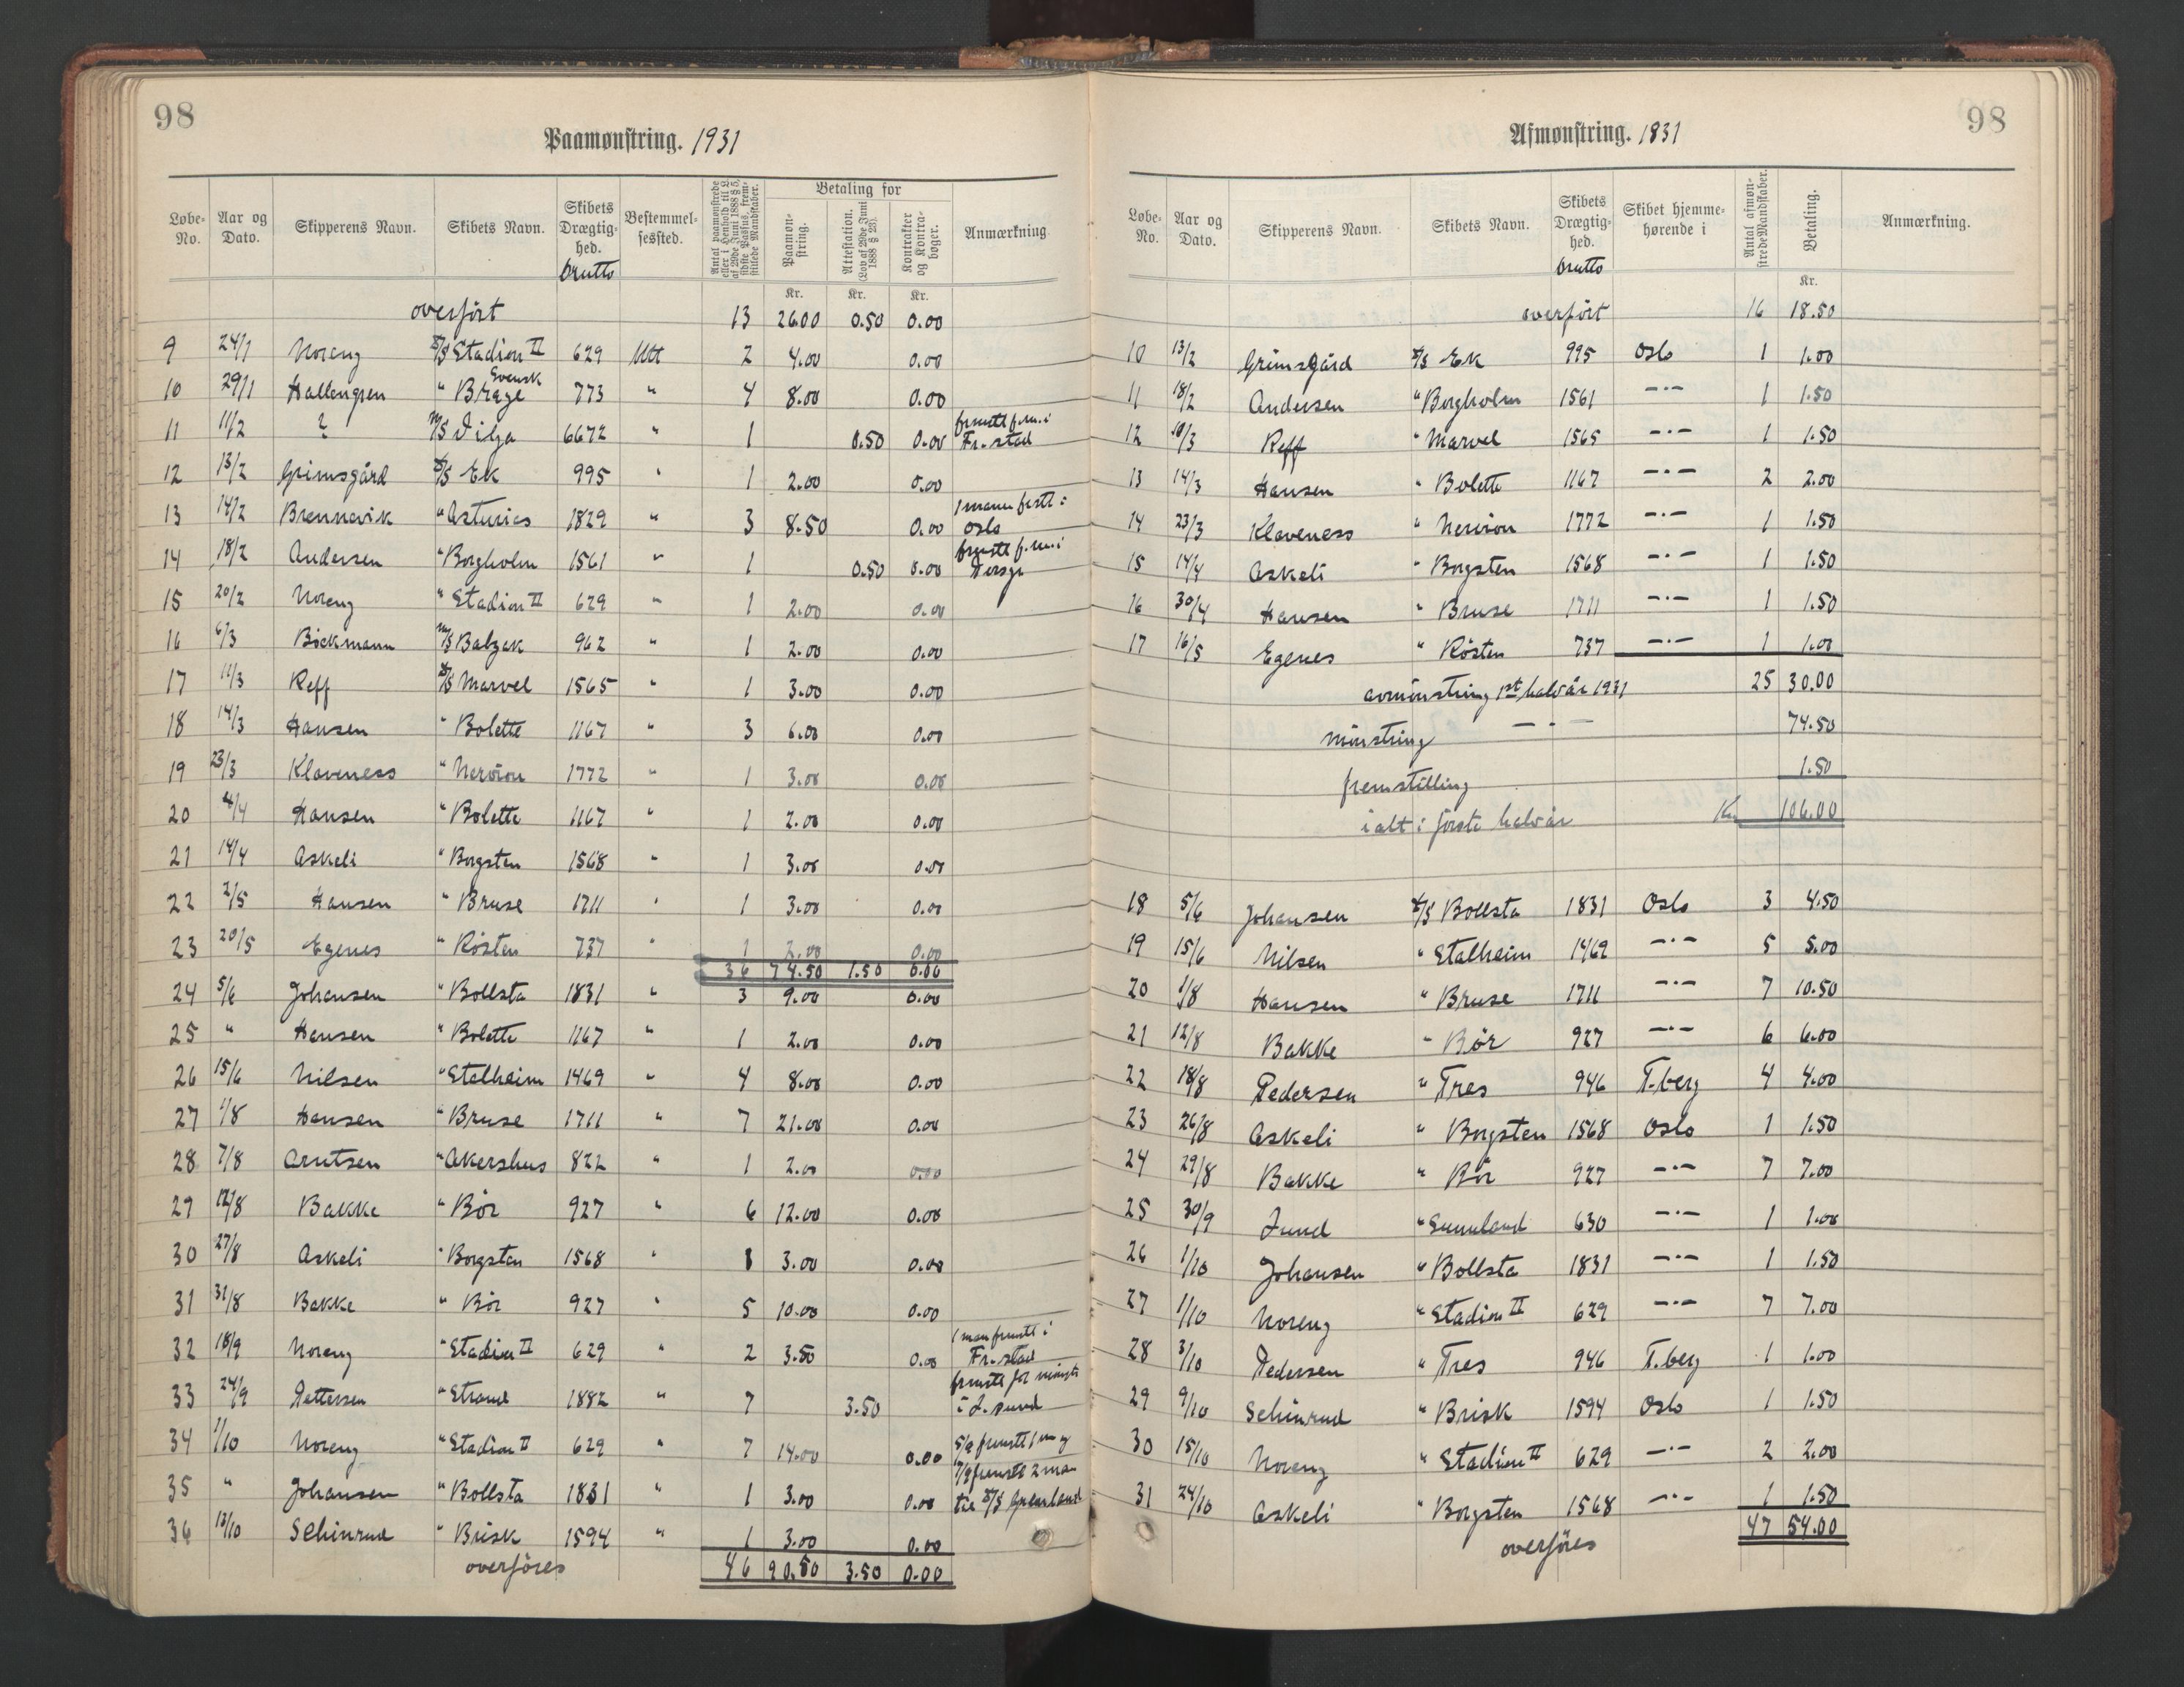 98
Paamønstring. 1931
Løbe-No. | Aar og Dato. | Skipperens Navn. | Skibets Navn. | Skibets Drægtighed. brutto | Bestemmelsessted. | Antal paamønstrede eller i Henhold til L. af 29de Juni 1888 § 5, sidste Passus, fremstillede Mandskaber. | Betaling for | Paamønstring. | Attestation. (Lov af 29de Juni 1888 § 23). | Kontrakter og Kontrabøger. | Anmærkning
Kr. | Kr. | Kr.
overført 13 26.00 0.50 0.00
9 24/1 Noreng S/S Stadion II 629 Utl 2 4.00 0.00
10 29/1 Hallengren " Brage Svensk 773 " 4 8.00 0.00
11 11/2 ? M/S Vilja 6672 " 1 0.50 0.00 fremstt f.m. i Fr.stad
12 13/2 Grimsgård S/S Ek 995 " 1 2.00 0.00
13 14/2 Brennavik " Asturias 1829 " 3 8.50 0.00 1 mann frstt i Oslo
14 18/2 Andersen " Borgholm 1561 " 1 0.50 0.00 fremstt f.m. i Porsgr
15 20/2 Noreng " Stadion II 629 " 1 2.00 0.00
16 6/3 Bickmann M/S Balzak 962 " 1 2.00 0.00
17 11/3 Reff S/S Marvel 1565 " 1 3.00 0.00
18 14/3 Hansen " Bolette 1167 " 3 6.00 0.00
19 23/3 Klaveness " Nervion 1772 " 1 3.00 0.00
20 4/4 Hansen " Bolette 1167 " 1 2.00 0.00
21 14/4 Askeli " Borgsten 1568 " 1 3.00 0.00
22 2/5 Hansen " Bruse 1711 " 1 3.00 0.00
23 20/5 Egenes " Rösten 737 " 1 2.00 0.00
36 74.50 1.50 0.00
24 5/6 Johansen " Bollsta 1831 " 3 9.00 0.00
25 " Hansen " Bolette 1167 " 1 2.00 0.00
26 15/6 Nilsen " Stalheim 1469 " 4 8.00 0.00
27 1/8 Hansen " Bruse 1711 " 7 21.00 0.00
28 7/8 Arntsen " Akershus 822 " 1 2.00 0.00
29 12/8 Bakke " Bör 927 " 6 12.00 0.00
30 27/8 Askeli " Borgsten 1568 " 1 3.00 0.00
31 31/8 Bakke " Bör 927 " 5 10.00 0.00
32 18/9 Noreng " Stadion II 629 " 2 3.50 0.00 1 man fremstt i Fr.stad
33 24/9 Pettersen " Strand 1882 " 7 3.50 fremstt for mönstr i L.sund
34 1/10 Noreng " Stadion II 629 " 7 14.00 0.00 5/9 fremstt 1 m og
35 " Johansen " Bollsta 1831 " 1 3.00 0.00 7/9 fremstt 2 man til S/S
36 13/10 Schinrud " Brisk 1594 " 1 3.00 0.00
overføres 46 90.50 3.50 0.00
98
Afmønstring. 1831
Løbe-No. | Aar og Dato. | Skipperens Navn. | Skibets Navn. | Skibets Drægtighed. brutto | Skibet hjemmehørende i | Antal afmønstrede Mandskaber. | Betaling. | Anmærkning.
Kr.
overført 16 18.50
10 13/2 Grimsgård S/S Ek 995 Oslo 1 1.00
11 18/2 Andersen " Borgholm 1561 —"— 1 1.50
12 10/3 Reff " Marvel 1565 —"— 1 1.50
13 14/3 Hansen " Bolette 1167 —"— 2 2.00
14 23/3 Klaveness " Nervion 1772 —"— 1 1.50
15 14/4 Askeli " Borgsten 1568 —"— 1 1.50
16 30/4 Hansen " Bruse 1711 —"— 1 1.50
17 16/5 Egenes " Rösten 737 —"— 1 1.00
avmönstring 1st halvår 1931 25 30.00
mönstring —"— 74.50
fremstilling 1.50
i alt i første halvår Kr 106.00
18 5/6 Johansen S/S Bollsta 1831 Oslo 3 4.50
19 15/6 Nilsen " Stalheim 1469 —"— 5 5.00
20 1/8 Hansen " Bruse 1711 —"— 7 10.50
21 12/8 Bakke " Bör 927 —"— 6 6.00
22 18/8 Pedersen " Tres 946 T.berg 4 4.00
23 26/8 Askeli " Borgsten 1568 Oslo 1 1.50
24 29/8 Bakke " Bör 927 —"— 7 7.00
25 30/9 Lund " Sunnland 630 —"— 1 1.00
26 1/10 Johansen " Bollsta 1831 —"— 1 1.50
27 1/10 Noreng " Stadion II 629 —"— 7 7.00
28 3/10 Pedersen " Tres 946 T.berg 1 1.00
29 9/10 Schinrud " Brisk 1594 Oslo 1 1.50
30 15/10 Noreng " Stadion II 629 —"— 2 2.00
31 24/10 Askeli " Borgsten 1568 —"— 1 1.50
overføres 47 54.00